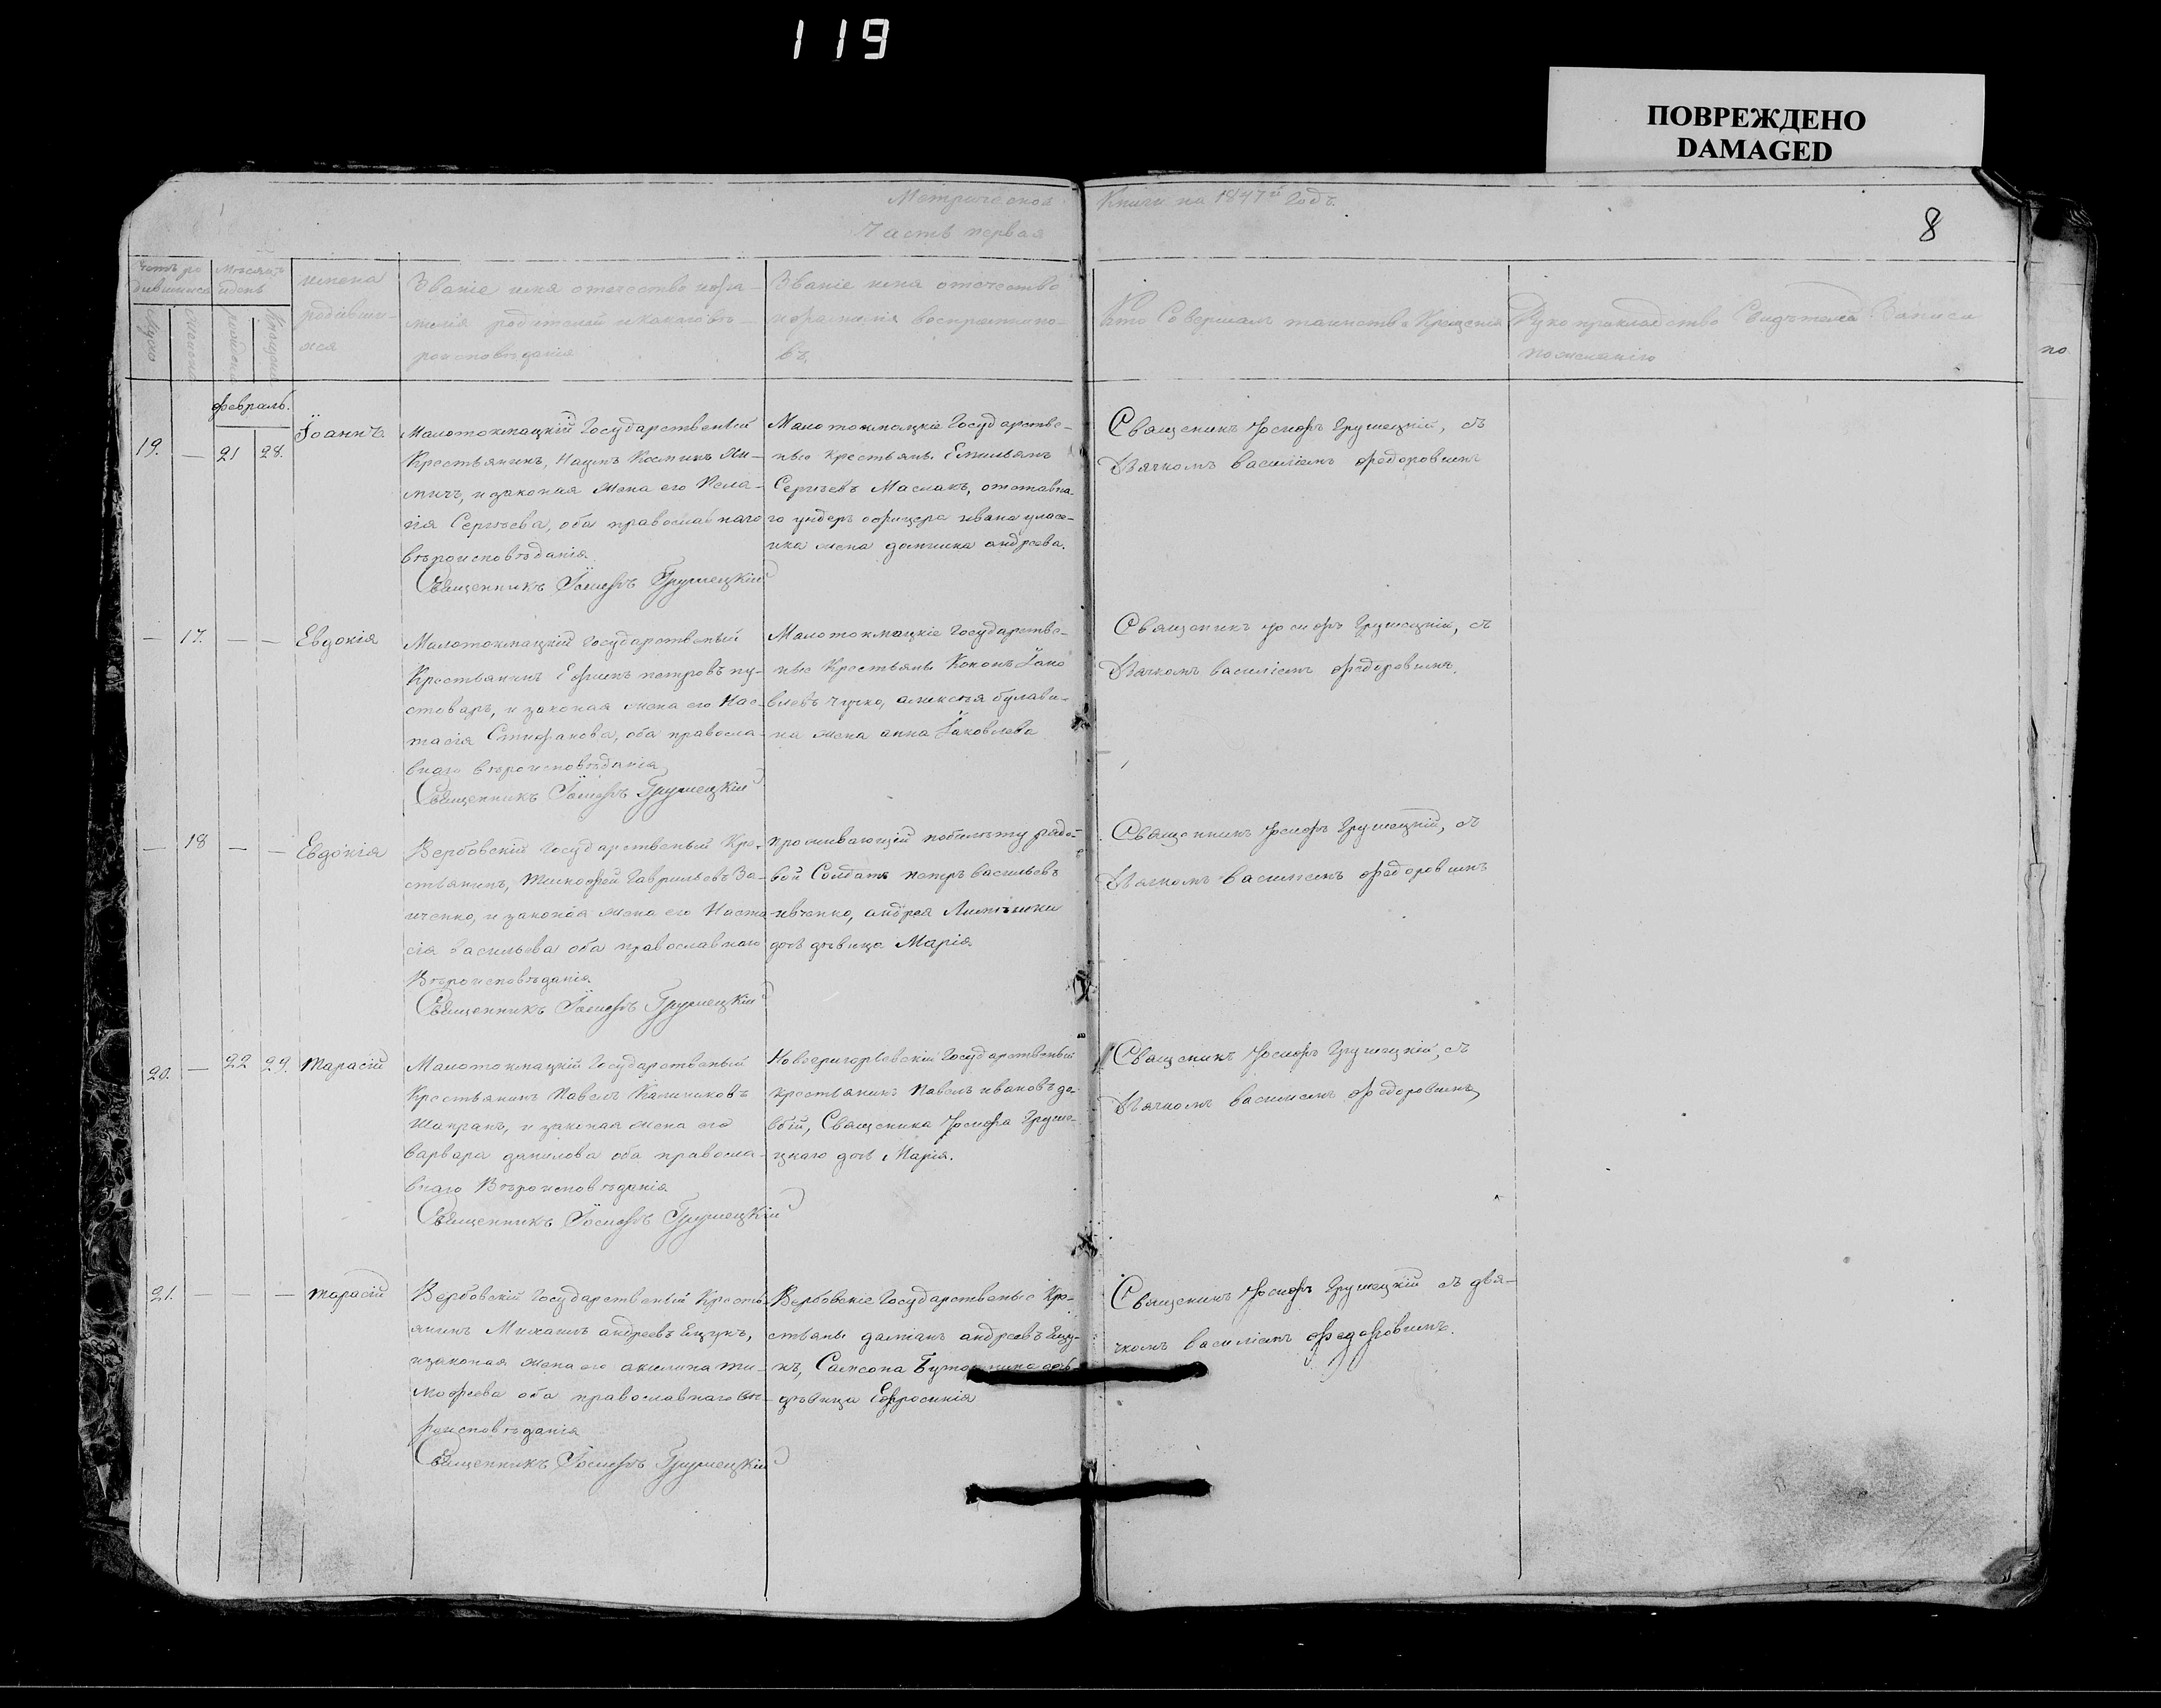 119
ПОВРЕЖДЕНО
DAMAGED
Метрической
Книги на 1847й Годъ.
8
Часть первая
Счетъ ро
дившихся
Мѣсяцъ
и день
имена
родивши-
хся
Званіе имя отечество и фа-
милія родителей и какаго вѣ-
роисповѣданія
Званіе имя отечество
и фамилія воспріемнико-
въ.
Кто Совершалъ таинство Крещенія
Рукоприкладство Свидѣтелей Записи
по желанію
но
Мужеска
Женска
рожденія
Крещенія
февраль.
19. — 21 28.
Їоаннъ
Малотокмацкій Государственый
Крестьянинъ, Наумъ Косминъ
и законая жена его Пела-
гія Сергѣева, оба православнаго
вѣроисповѣданія
Священникъ Їосифъ Грушецкій
Малотокмацкіе Государстве-
ные крестьяне Емильянъ
Сергѣевъ Маслакъ, отставна-
го ундеръ офицера ивана
жена домника андреева.
Священикъ Іосифъ Грушецкій, съ
Дьячкомъ василіемъ федоровимъ
— 17. — —
Евдокія
Малотокмацкій Государственый
Крестьянинъ Ефимъ петровъ пу-
стоваръ, и законая жена его Нас-
тасія Стифанова, оба правосла-
внаго вѣроисповѣданія
Священникъ Їосифъ Грушецкій
Малотокмацкіе Государстве-
ные Крестьяне Кононъ Їако
влевъ чучко, алексѣя булави-
на жена анна Їаковлева
Священикъ Іосифъ Грушецкій, съ
Дьячкомъ василіемъ федоровимъ.
— 18 — —
Евдокія
Вербовскій Государственый Кре-
стьянинъ, Тимофей Гаврильевъ За-
иченко, и законая жена его Наста
сія васильева оба православнаго
Вѣроисповѣданія.
Священникъ Їосифъ Грушецкій
проживающій побилѣту рядо-
вой Солдатъ петръ васильевъ
ивченко, андрея
дочь дѣвица Марія
Священникъ Іосифъ Грушецкій, съ
Дьячкомъ василіемъ федоровимъ
20. — 22 29.
Тарасій
Малотокмацкій Государственый
Крестьянинъ Павелъ Калениковъ
Шапранъ, и законая жена его
варвара данилова оба правосла-
внаго Вѣроисповѣданія
Священникъ Їосифъ Грушецкій
Новогригорьевскій Государственый
крестьянинъ Павелъ ивановъ до-
вбій, Священика Іосифа Груше-
цкаго дочь Марія.
Священикъ Іосифъ Грушецкій, съ
Дьячкомъ василіемъ федоровимъ
21. — — —
Тарасій
Вербовскій Государственый Кресть-
янинъ Михаилъ андреевъ Ецукъ,
и законая жена его акилина ти-
мофеева оба православнаго вѣ-
роисповѣданія
Священникъ Їосифъ Грушецкій
Вербовскіе Государственые Кре-
стьяне даміанъ андреевъ Ецу-
къ, Самсона дочь
дѣвица Ефросинія
Священикъ Іосифъ Грушецкій съ дья-
чкомъ василіемъ федоровимъ.